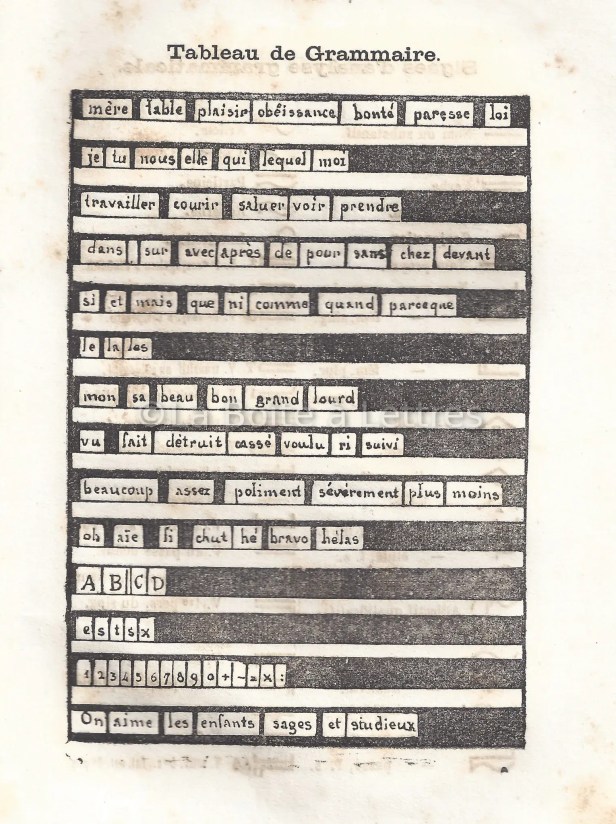 Tableau de Grammaire.
mère table plaisir obéissance bonté paresse loi
je tu nous elle qui lequel moi
travailler courir saluer voir prendre
dans sur avec après de pour sans chez devant
si et mais que ni comme quand parceque
le la les
mon sa beau bon grand lourd
© La Boîte à Lettres
vu fait détruit cassé voulu ri suivi
beaucoup assez poliment sévèrement plus moins
oh aïe fi chut hé bravo hélas
A B C D
e s t s x
1 2 3 4 5 6 7 8 9 0 + - = x :
On aime les enfants sages et studieux